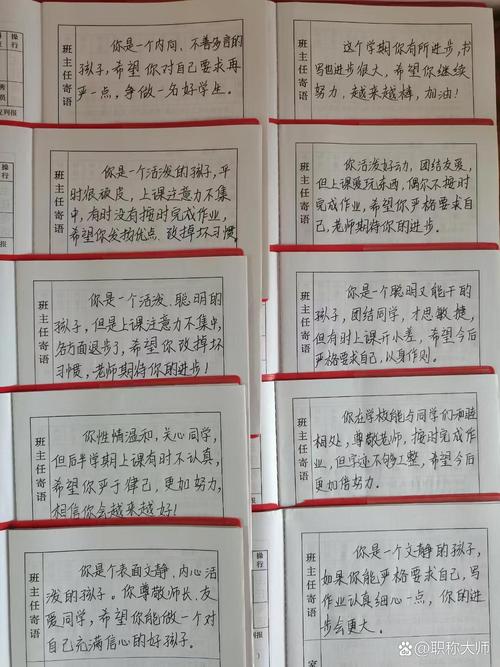 班主任寄语
你是一个内向、不善多言的
孩子,希望你对自己要求再
严一点,争做一名好学生。
班主任寄语
这个学期你有所进步,书
写也进步很大,希望你继续
努力,越来越棒,加油!
操行
班主任寄语
你是一个活泼的孩子,平
时很顽皮,上课注意力不集
中,有时没有按时完成作业,
希望你发扬优点、改掉坏习惯
操行
班主任寄语
你活泼好动,团结友爱,
但上课爱玩东西,偶尔不按时
完成作业,希望你严格要求自己,
老师期待你的进步。
班主任寄语
你是一个活泼、聪明的
孩子,但是上课注意力不集中,
各方面退步了,希望你改掉坏
习惯,老师期待你的进步!
班主任寄语
你是一个聪明又能干的
孩子,团结同学,才思敏捷,
但有时上课开小差,希望今后
严格要求自己,以身作则。
班主任寄语
你性情温和,关心同学,
但后半学期上课有时不认真,
希望你严于律己,更加努力,
相信你会越来越好!
班主任寄语
你在学校能与同学们和睦
相处,尊敬老师,按时完成作
业,但字迹不够工整,希望今后
更加倍努力。
班主任寄语
你是个表面文静,内心活
泼的孩子。你尊敬师长,友
爱同学,希望你能做一个对
自己充满信心的好孩子。
操行
班主任寄语
你是一个文静的孩子,
如果你能严格要求自己,写
作业认真细心一点,你的进
步会更大。
@职称大师